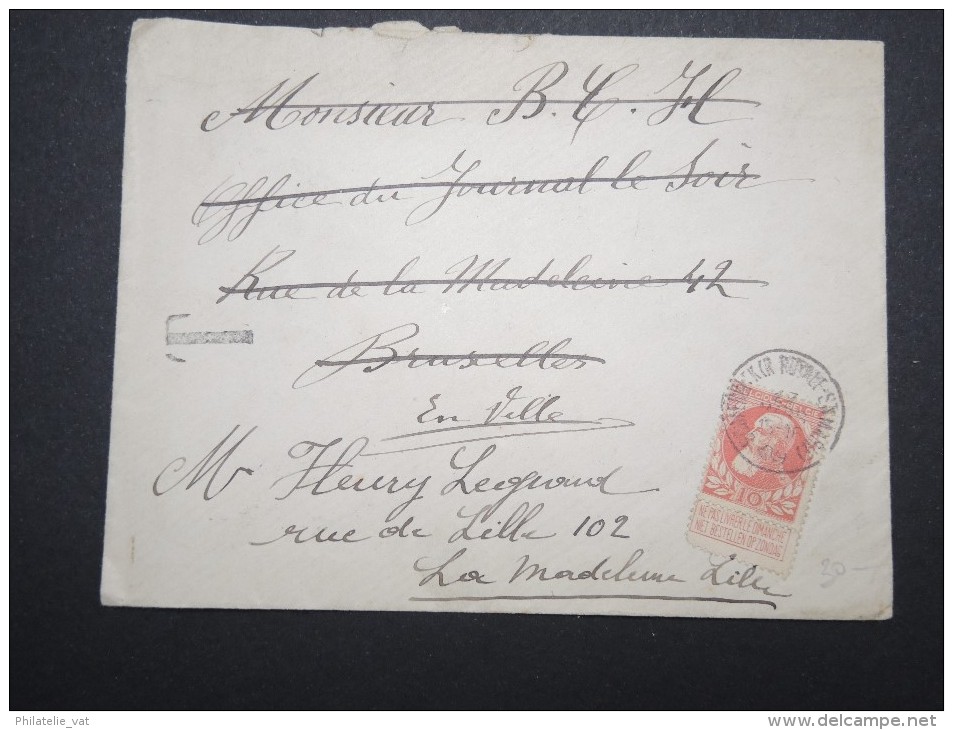 Monsieur B. C. H
Office du Journal le Soir
Rue de la Madeleine 42
Bruxelles
En Ville
Mr Fleury Legrand
rue de Lille 102
La Madeleine Lille
T
10
NE PAS LIVRER LE DIMANCHE
NIET BESTELLEN OP ZONDAG
30-
Philatelie_vat
www.delcampe.net